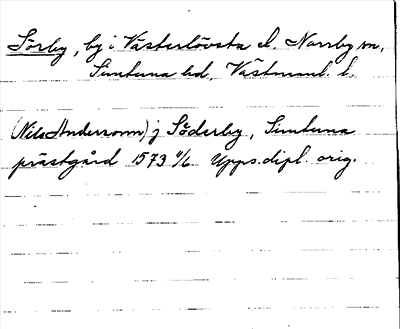 Sörby, by i Västerlövsta el. Norrby sn,
Simtuna hd, Västmanl. l.
(Nils Andersson) j Söderby, Simtuna
prästgård 1573 11/6 Upps.dipl. orig.